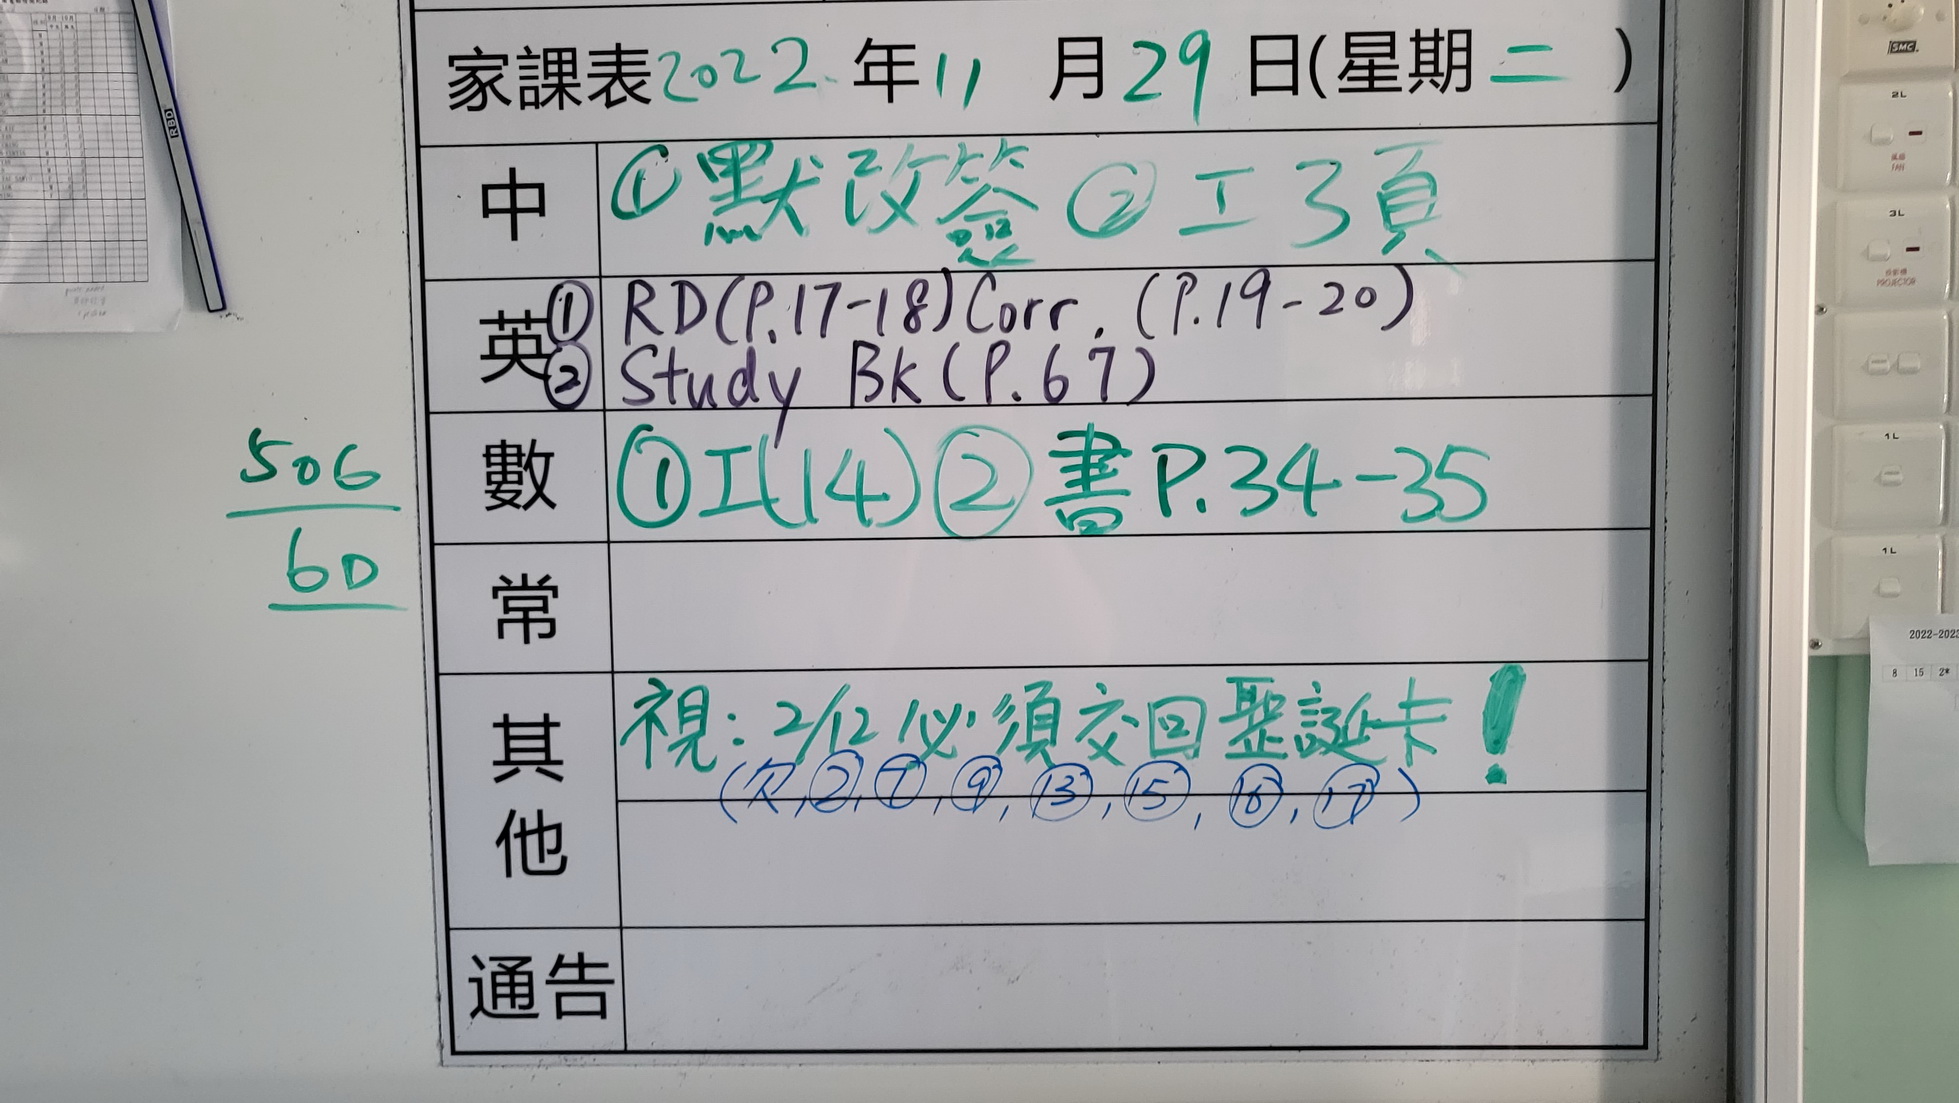 家課表2022年11月29日(星期二)
中 ①默改簽 ②工3頁
英 ① RD(P.17-18)Corr. (P.19-20)
② Study Bk(P.67)
數 ①工(14) ②書P.34-35
常
其他 視:2/12必須交回聖誕卡!
(欠,②,⑦,⑨,⑬,⑮,⑯,⑰)
通告
506
6D
RBD
SMC
2L
FAN
3L
PROJECTOR
1L
1L
2022-2023
8 15 2*